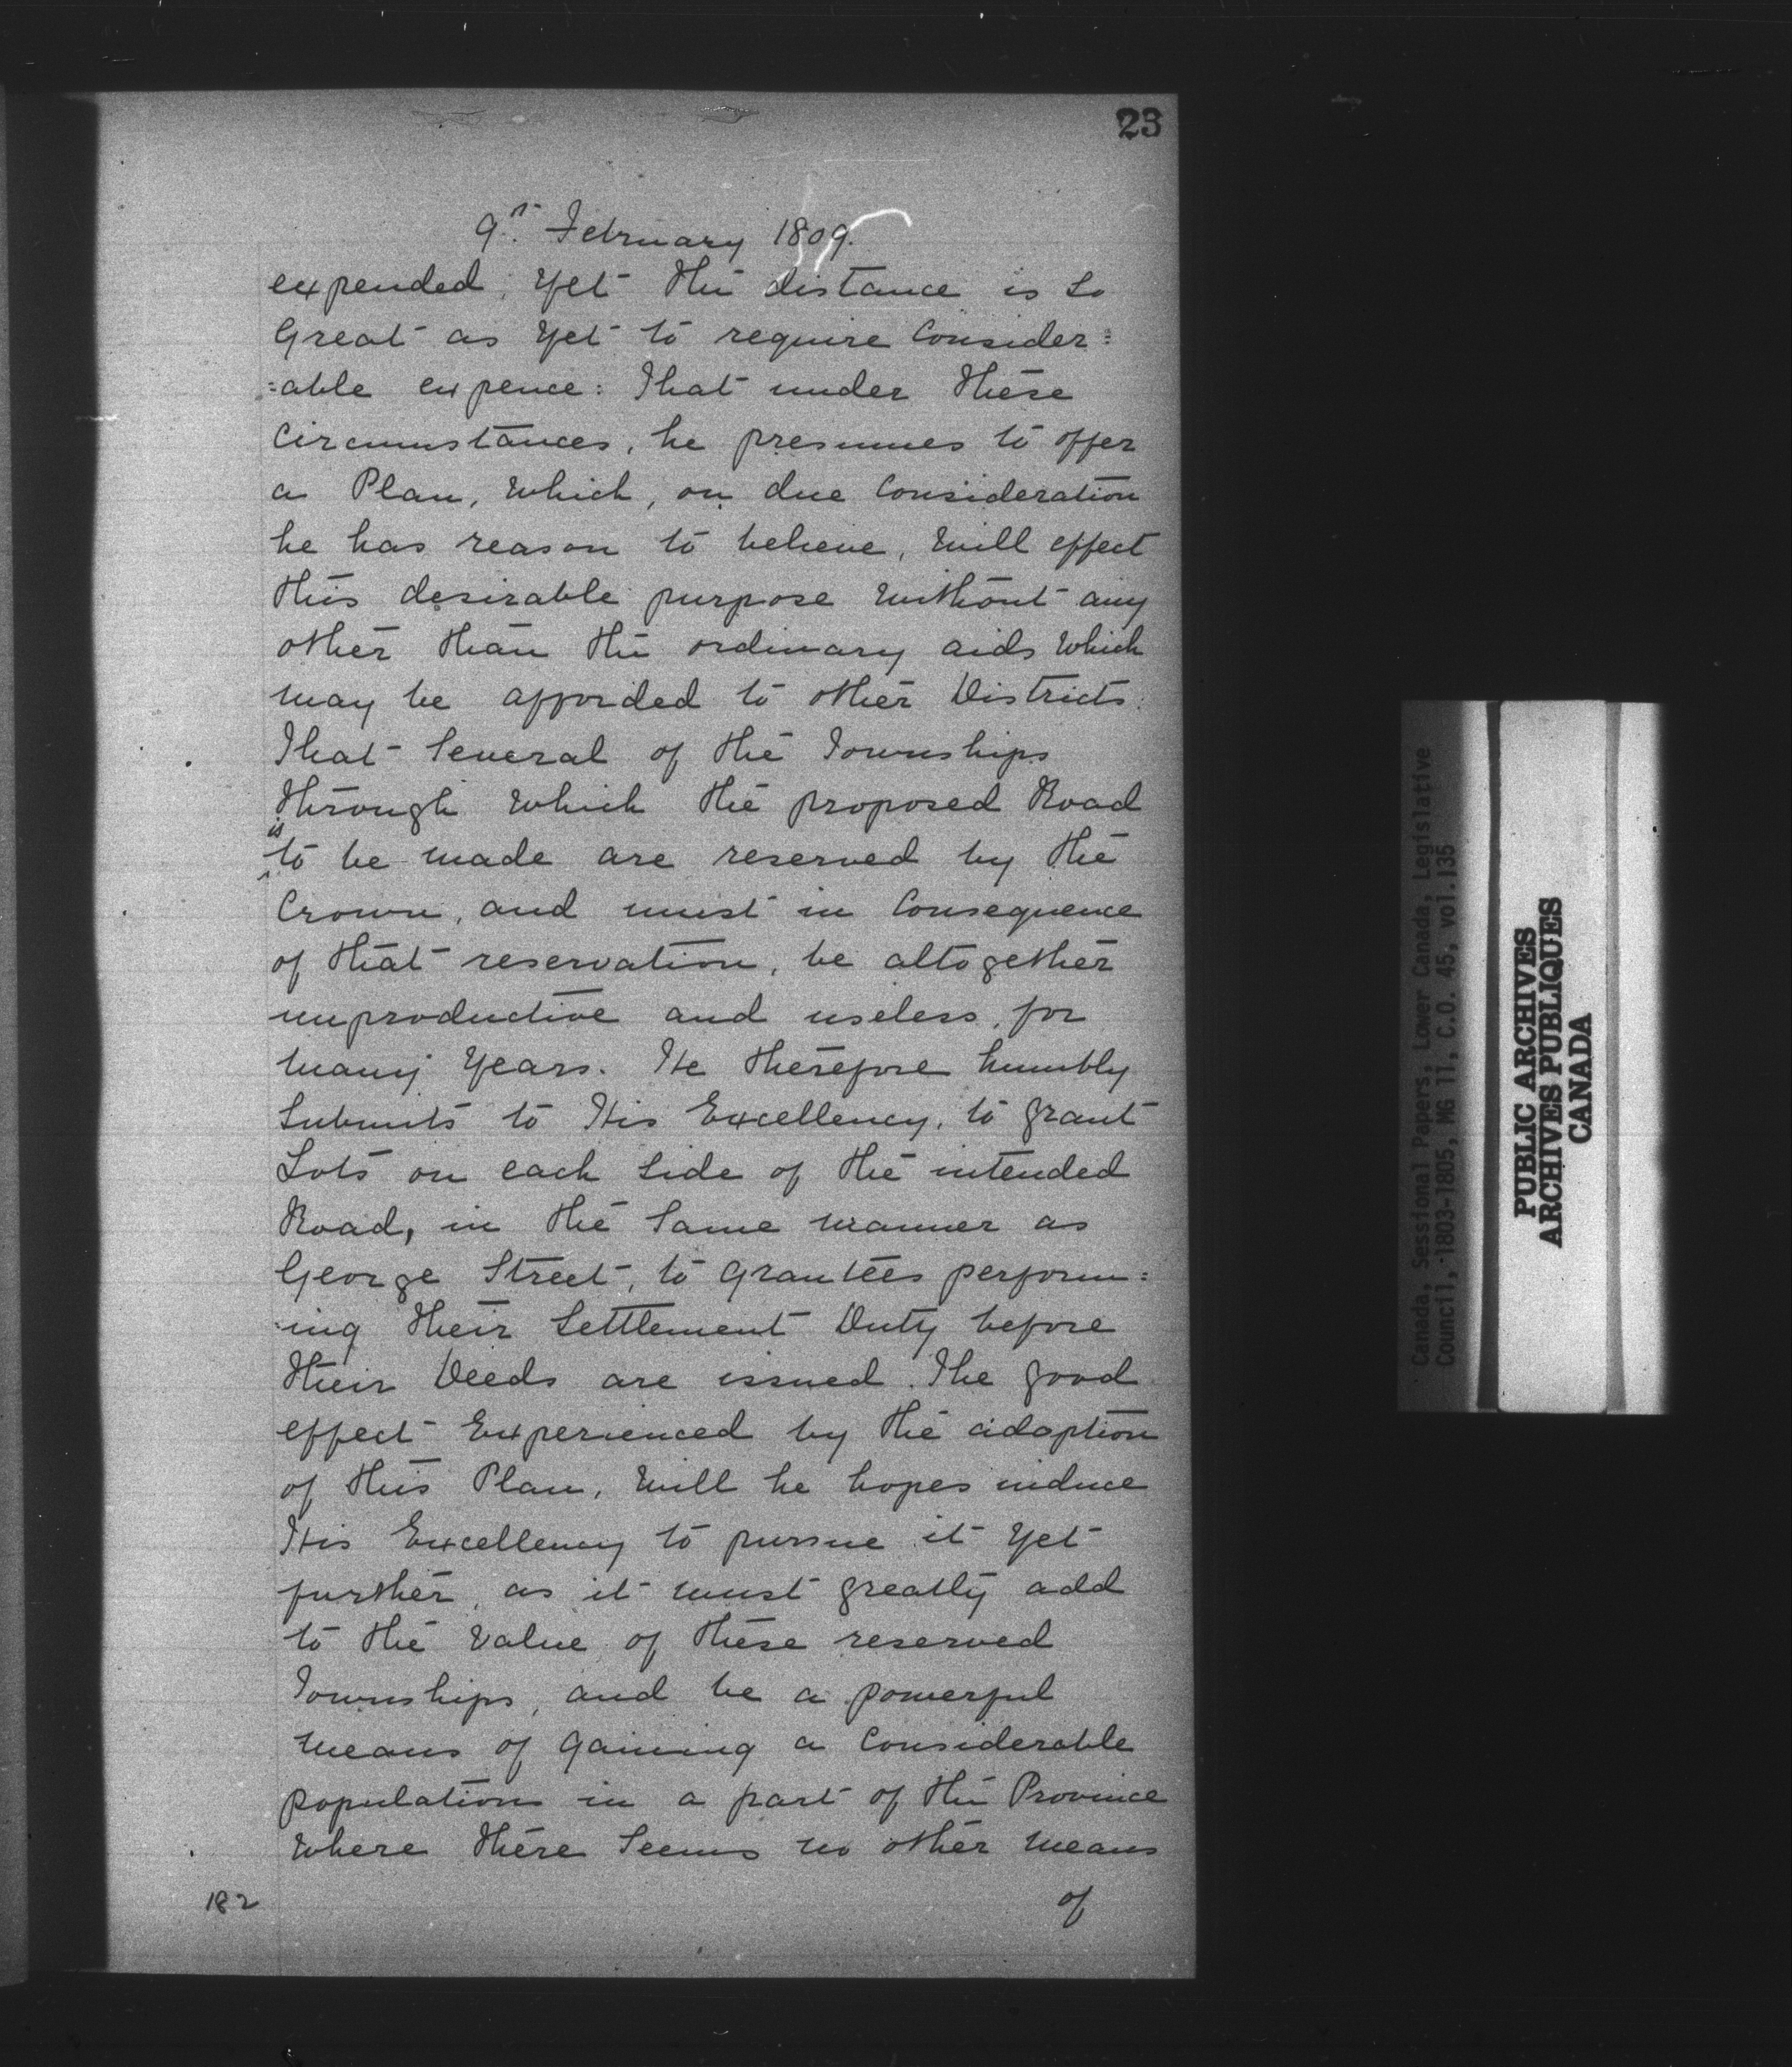 23
9th February 1809.
expended; Yet the distance is so
Great as Yet to require Consider=
=able expence: That under these
Circumstances, he presumes to offer
a Plan, Which, on due Consideration
he has reason to believe, Will effect
this desirable purpose Without any
other than the ordinary aids Which
may be afforded to other Districts:
That Several of the Townships
through Which the proposed Road
is
to be made are reserved by the
Crown, and must in Consequence
of that reservation, be altogether
unproductive and useless, for
many Years. He therefore humbly
Submits to His Excellency, to grant
Lots on each Side of the intended
Road, in the Same manner as
George Street, to Grantees perform=
=ing their Settlement Duty before
their Deeds are issued. The good
effect Experienced by the adoption
of this Plan, Will he hopes induce
His Excellency to pursue it Yet
further, as it must greatly add
to the Value of these reserved
Townships, and be a powerful
means of Gaining a Considerable
population in a part of the Province
Where there Seems no other means
182
of
Canada, Sessional Papers, Lower Canada, Legislative
Council, 1803-1805, MG 11, C.O. 45, vol.135
PUBLIC ARCHIVES
ARCHIVES PUBLIQUES
CANADA